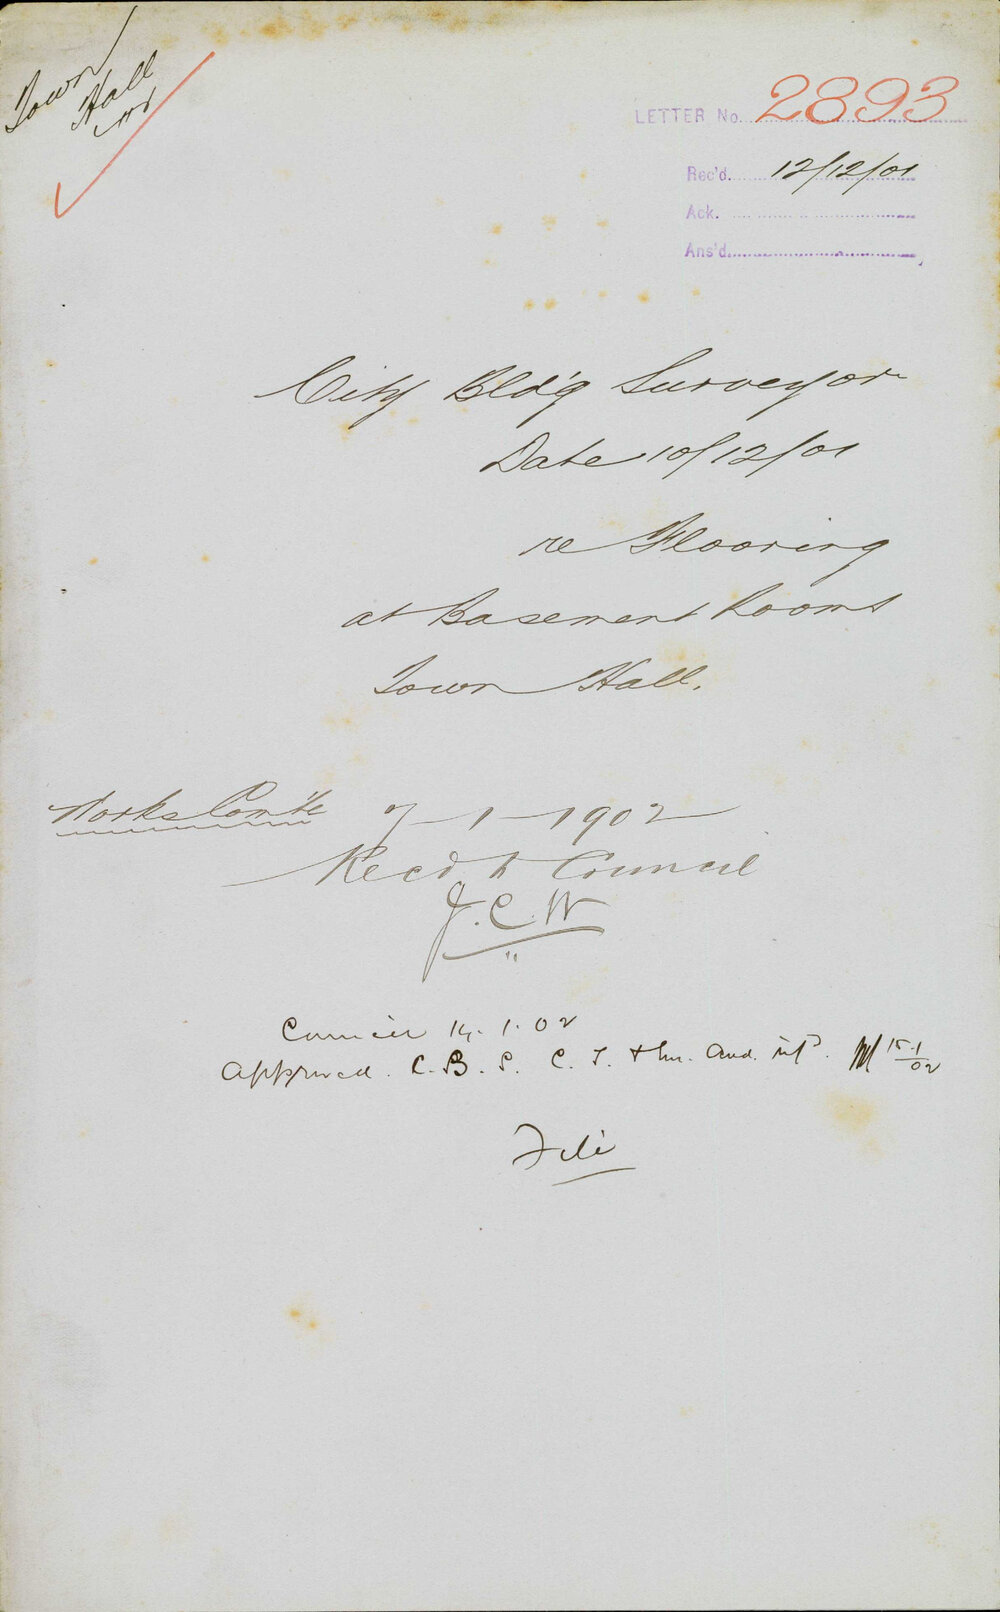 Town
Hall
LETTER No. 2893
Rec'd. 12/12/01
Ack.
Ans'd.
City Bld'g Surveyor
Date 10/12/01
re Flooring
at Basement Rooms
Town Hall.
Works Com'te 7-1-1902
Rec'd to Council
J.C.W
Council 14.1.02
Approved. C.B.S. C.T. & Aud. 15.1/02
File